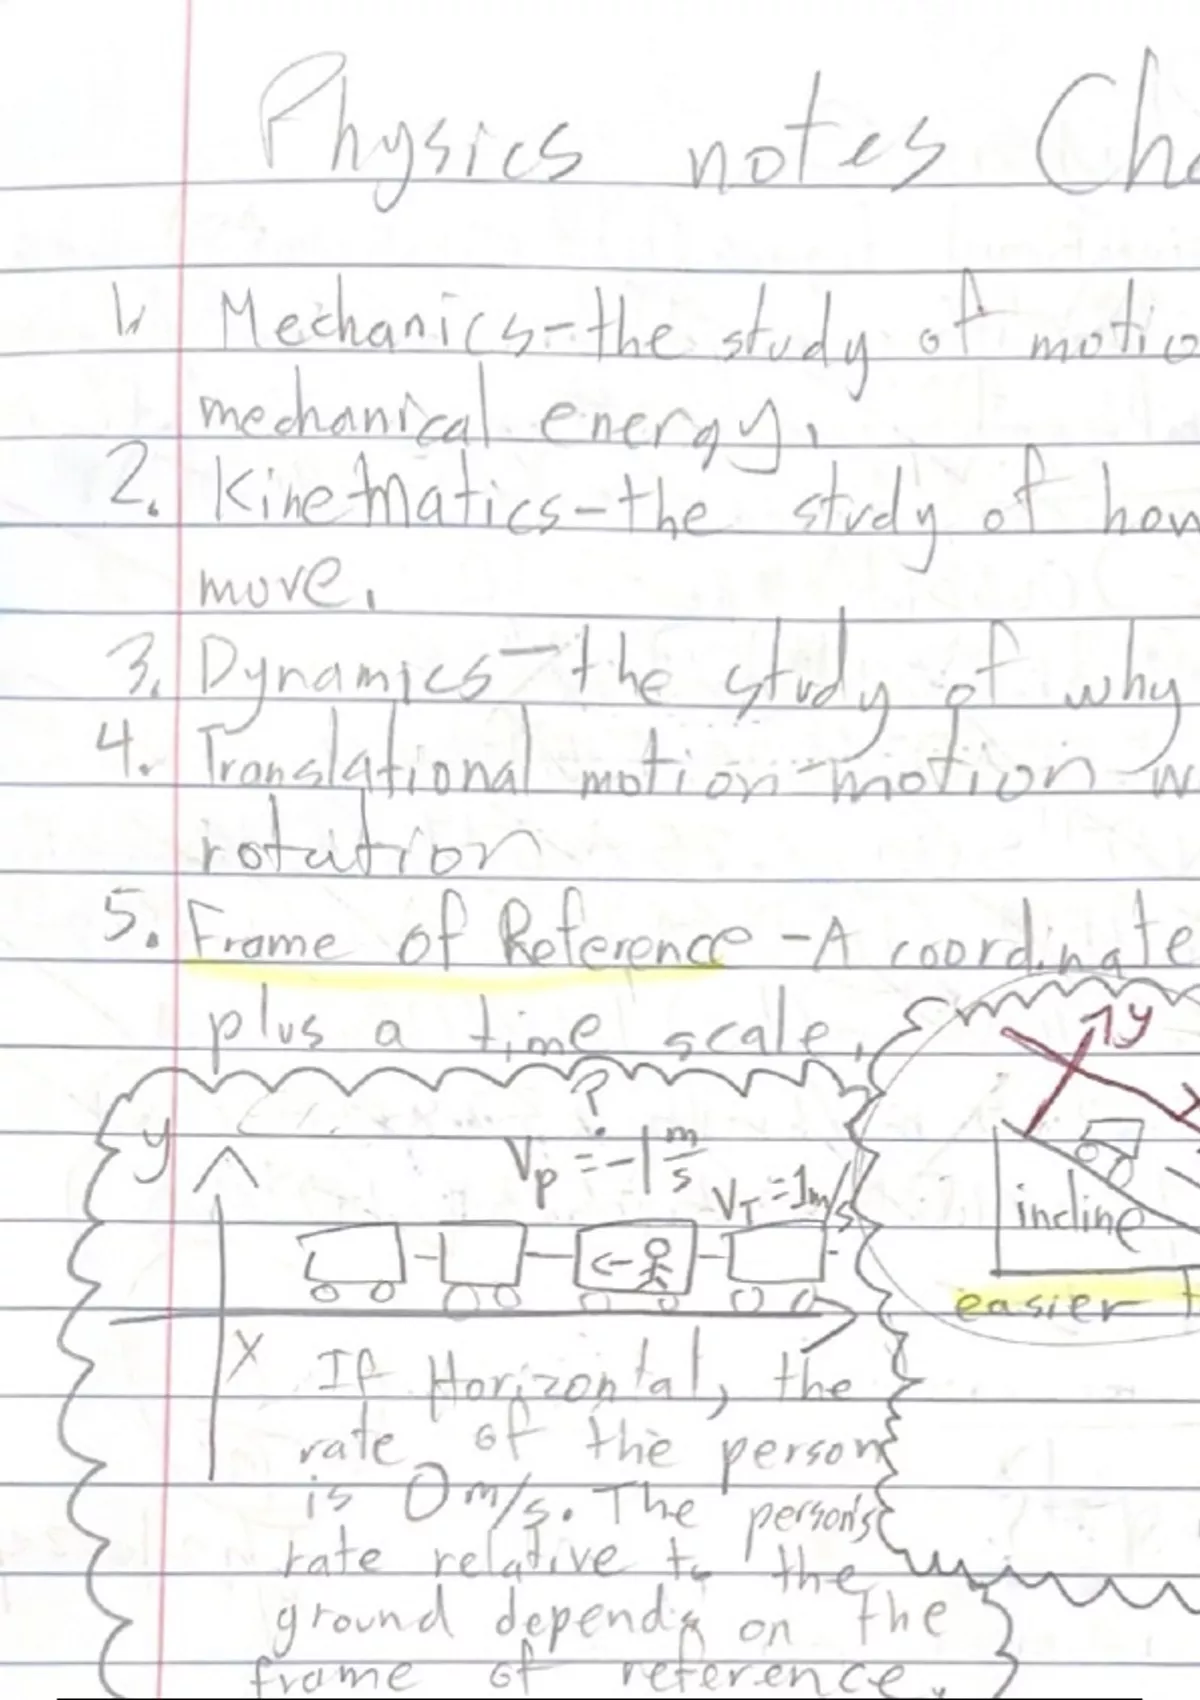 Physics notes Cha
1. Mechanics-the study of motio
mechanical energy.
2. Kinetmatics-the study of how
move.
3. Dynamics-the study of why
4. Translational motion-motion w
rotation
5. Frame of Reference-A coordinate
plus a time scale.
y
?
Vp = -1 m/s
VT = 1m/s
X
If Horizontal, the
rate of the person
is 0m/s. The person's
rate relative to the
ground depends on the
frame of reference.
y
incline
easier t